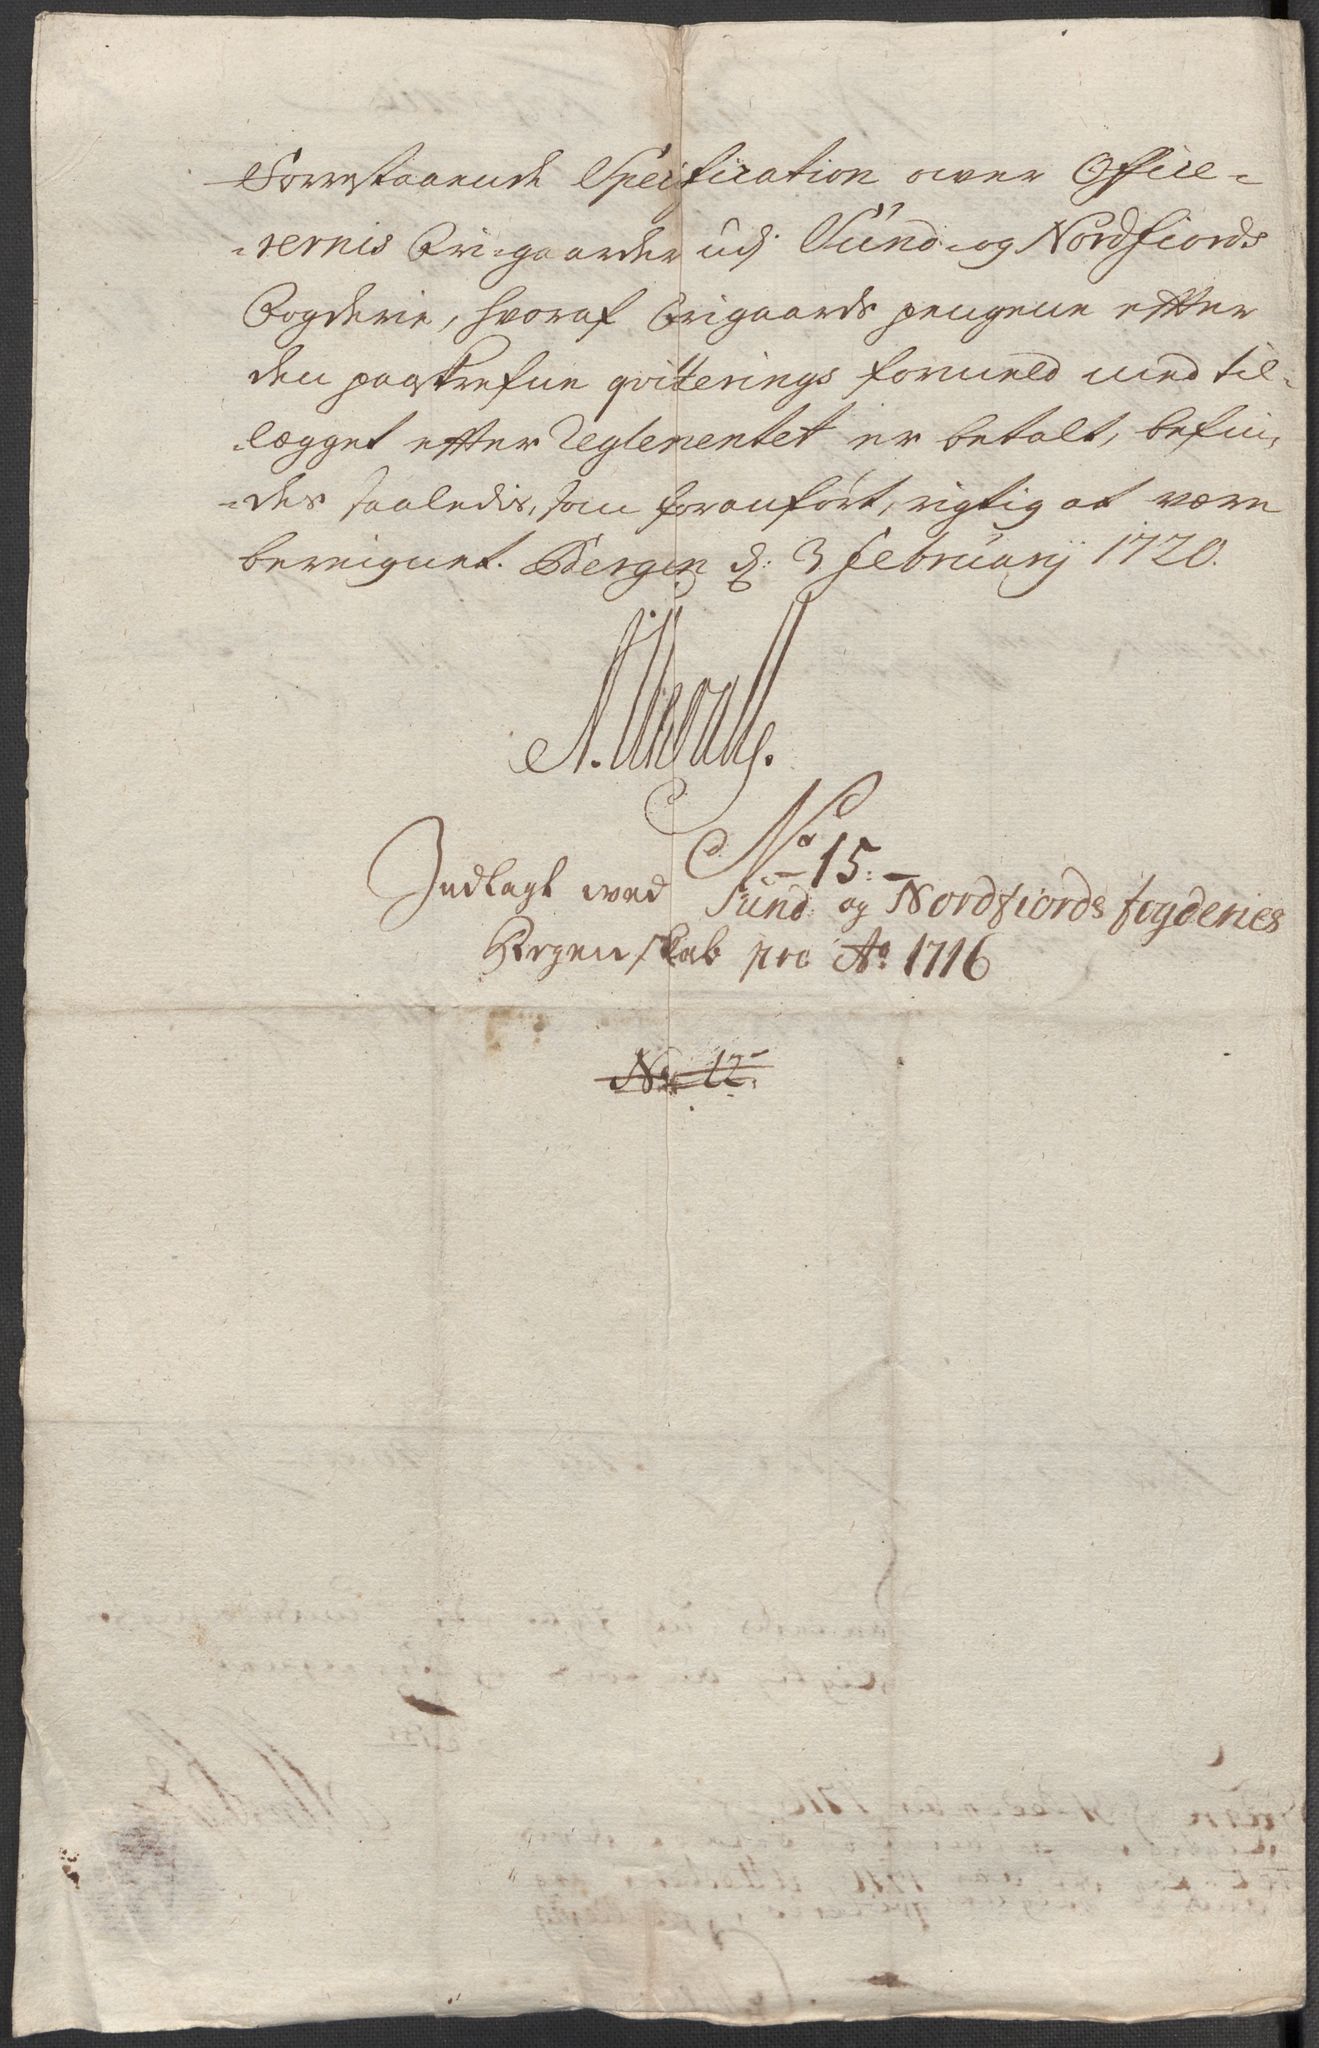 Forrestaaende Specification ower Office-
-rernis Frigaarder udj Sund- og Nordfiords
Fogderie, hvoraf Frigaards pengene efter
den paaskrefne qvitterings formeld med til-
-lægget efter Reglementet er betalt, befin-
-des saaledis, som foranført, rigtig at være
bereignet. Bergen d: 3 February 1720.
No 15.
Indlagt wed Sund og Nordfiords fogderies
Regenskab pro Ao 1716
No 12